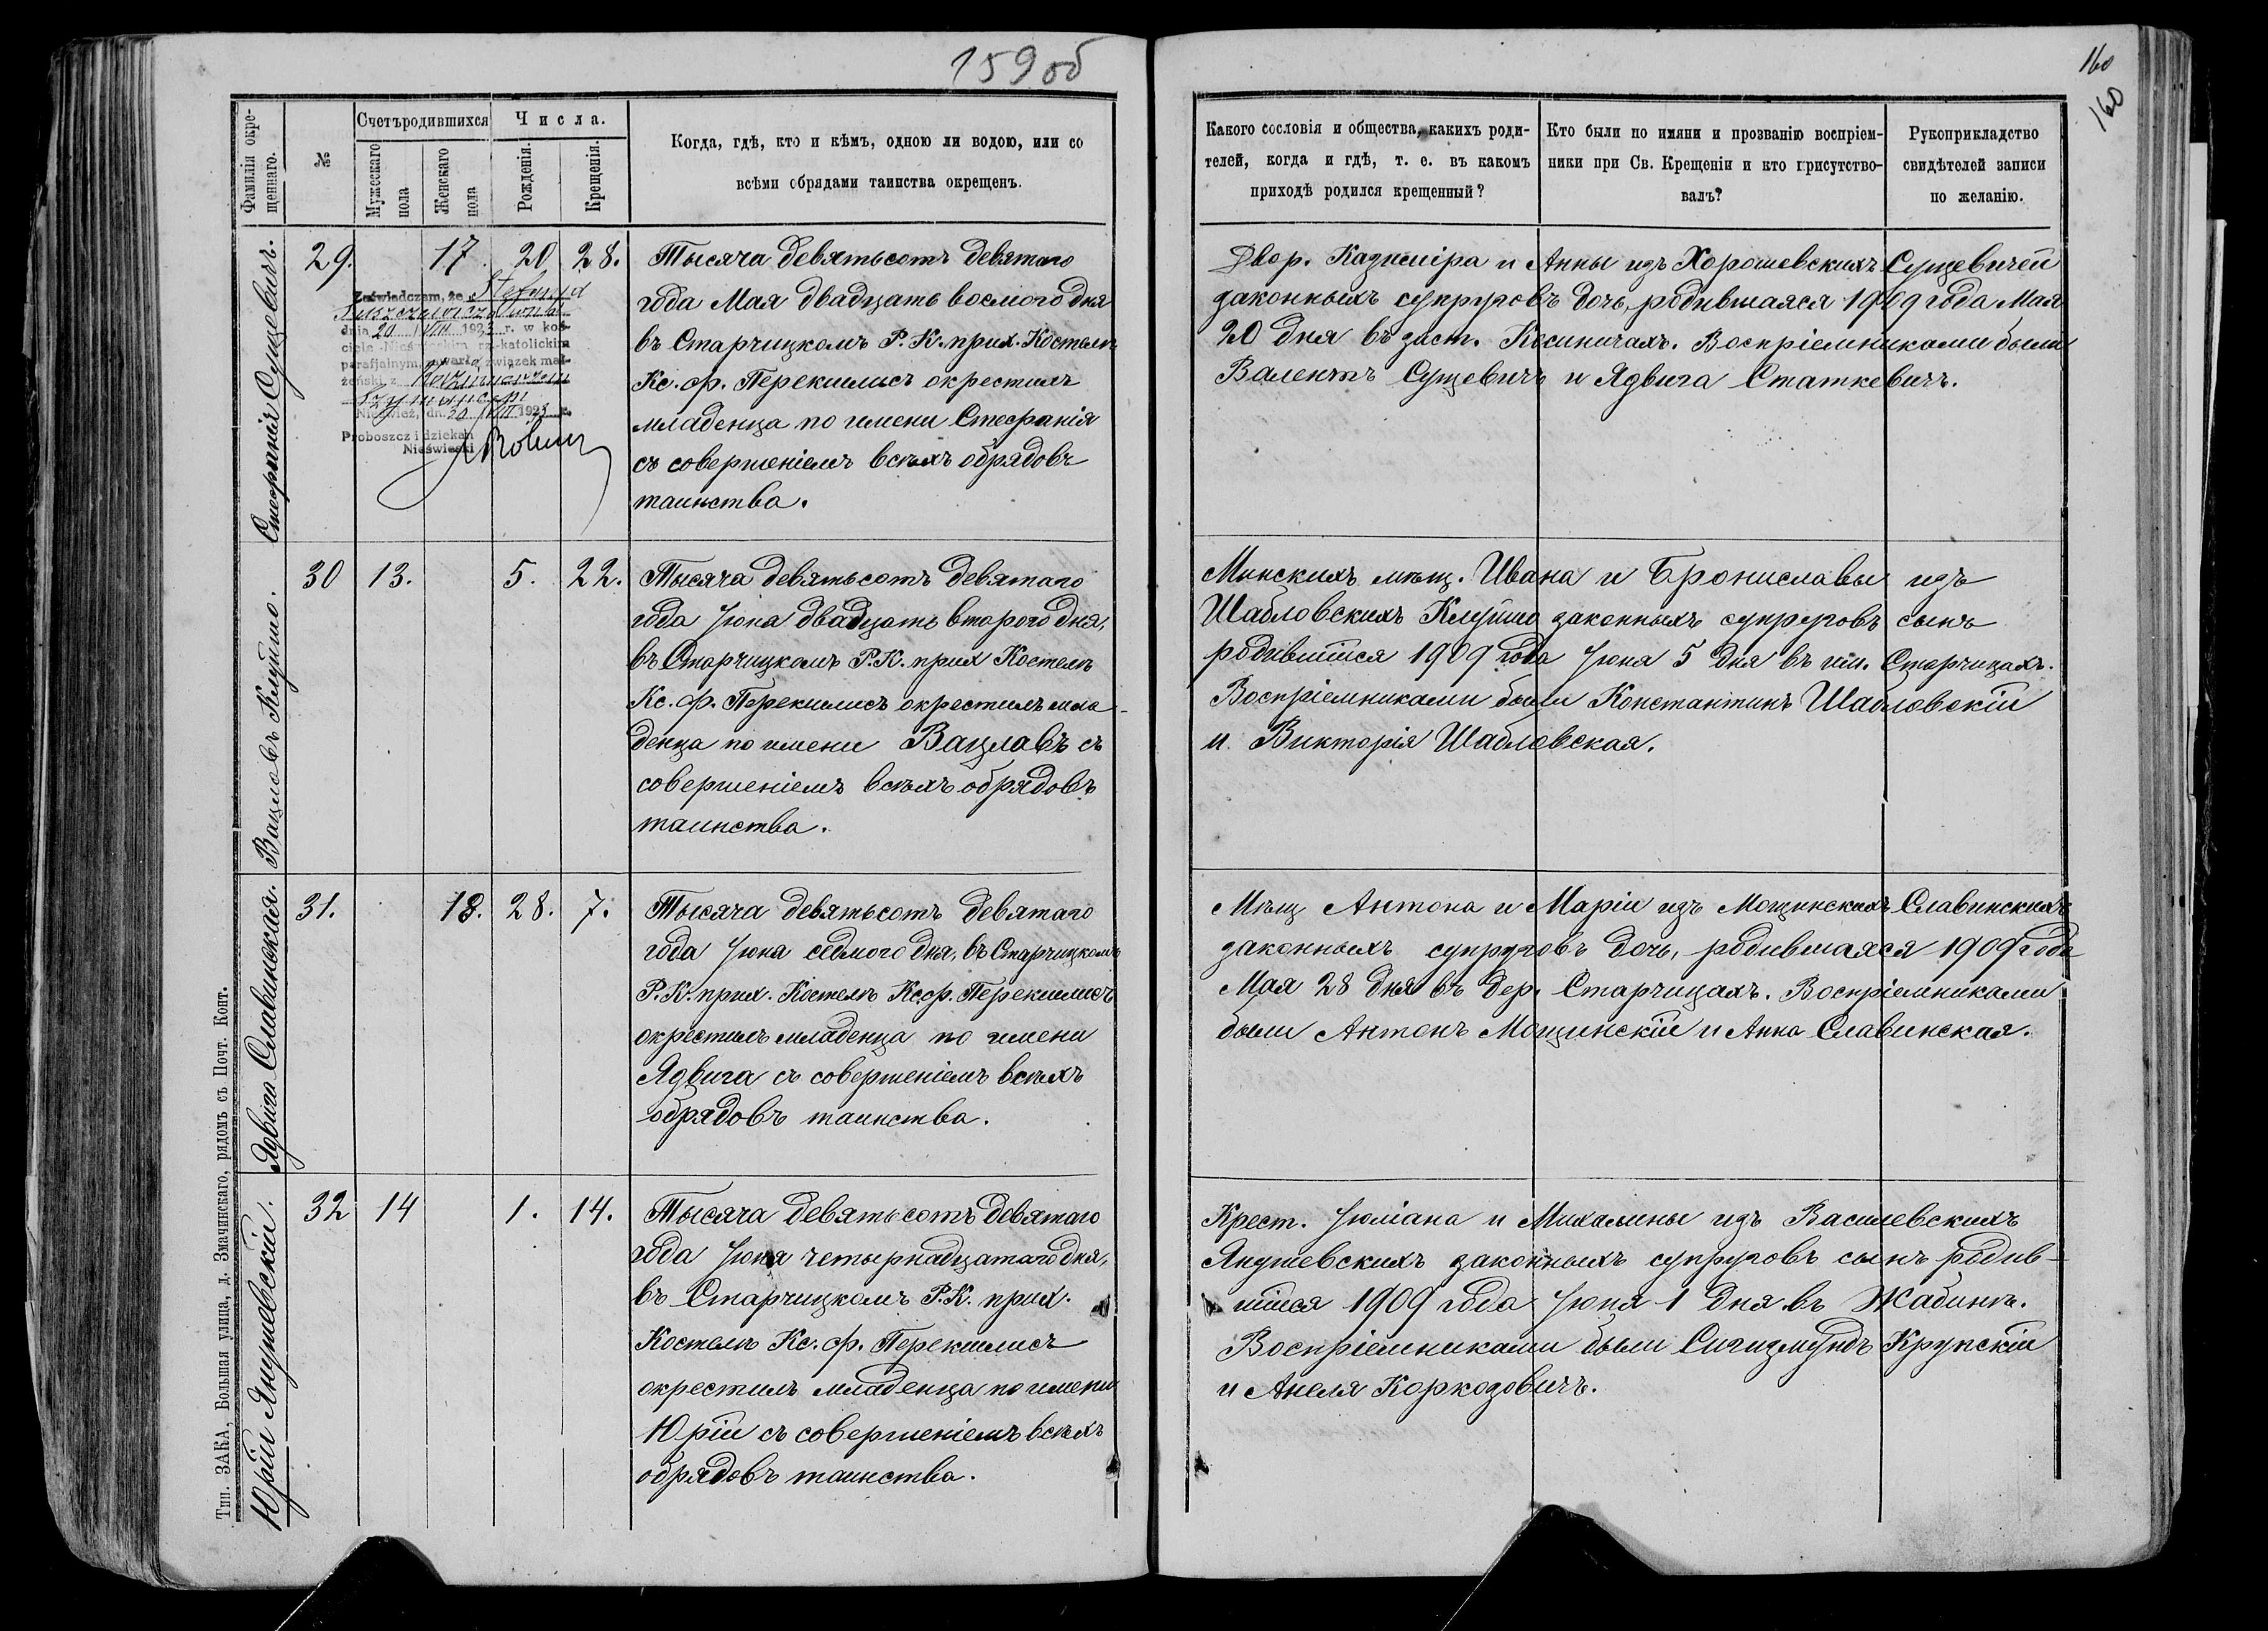 159 об
160
160
Фамилія окре-
щеннаго.
№
Счетъ родившихся
Мужескаго
пола
Женскаго
пола
Числа.
Рожденія.
Крещенія.
Когда, гдѣ, кто и кѣмъ, одною ли водою, или со
всѣми обрядами таинства окрещенъ.
Какого сословія и общества, какихъ роди-
телей, когда и гдѣ, т. е. въ какомъ
приходѣ родился крещенный?
Кто были по имяни и прозванію воспріем-
ники при Св. Крещеніи и кто присутство-
валъ?
Рукоприкладство
свидѣтелей записи
по желанію.
Стефанія Сущевичъ.
29. 17. 20 28.
Zaświadczam, że Stefanja
dnia 20 VIII 1923 r. w koś-
ciele rz.-katolickim
parafjalnym zawarła związek mał-
żeński z
Nieśwież, dn. 20 VIII 1923 r.
Proboszcz i dziekan
Nieświeski
Тысяча девятьсотъ девятаго
года Мая двадцать восмого дня
въ Старчицкомъ Р. К. прих. Костелѣ
Кс. ф. Перекшлисъ окрестилъ
младенца по имени Стефанія
съ совершеніемъ всѣхъ обрядовъ
таинства.
Двор. Казиміра и Анны изъ Хорошевскихъ Сущевичей
законныхъ супруговъ дочь, родившаяся 1909 года Мая
20 дня въ заст. Кесиничахъ. Воспріемниками были
Валентъ Сущевичъ и Ядвига Статкевичъ.
Вацлавъ Клуйшо.
30 13. 5. 22.
Тысяча девятьсотъ девятаго
года Іюна двадцать второго дня,
въ Старчицкомъ Р. К. прих Костелѣ
Кс. ф. Перекшлисъ окрестилъ мла-
денца по имени Вацлавъ съ
совершеніемъ всѣхъ обрядовъ
таинства.
Минскихъ мѣщ. Ивана и Брониславы изъ
Шабловскихъ Клуйшо законныхъ супруговъ сынъ
родившійся 1909 года Іюна 5 дня въ им. Старчицахъ.
Воспріемниками были Константинъ Шабловскій
и Викторія Шабловская.
Ядвига Славинская.
31. 18. 28. 7.
Тысяча девятьсотъ девятаго
года Іюна седмого дня, въ Старчицкомъ
Р. К. прих. Костелѣ Кс. ф. Перекшлисъ
окрестилъ младенца по имени
Ядвига съ совершеніемъ всѣхъ
обрядовъ таинства.
Мѣщ Антона и Маріи изъ Мощинскихъ Славинскихъ
законныхъ супруговъ дочь, родившаяся 1909 года
Мая 28 дня въ дер. Старчицахъ. Воспріемниками
были Антонъ Мощинскій и Анна Славинская.
Юрій Янушевскій.
32 14 1. 14.
Тысяча девятьсотъ девятаго
года Іюня четырнадцатаго дня,
въ Старчицкомъ Р. К. прих.
Костелѣ Кс. ф. Перекшлисъ
окрестилъ младенца по имени
Юрій съ совершеніемъ всѣхъ
обрядовъ таинства.
Крест. Іюліана и Михалины изъ Василевскихъ
Янушевскихъ законныхъ супруговъ сынъ родив-
шійся 1909 года Іюня 1 дня въ Жабинѣ.
Воспріемниками были Сигизмундъ Крупскій
и Анеля Коркозовичъ.
Тип. ЗАКА, Большая улица, д. Змачинскаго, рядомъ съ Почт. Конт.